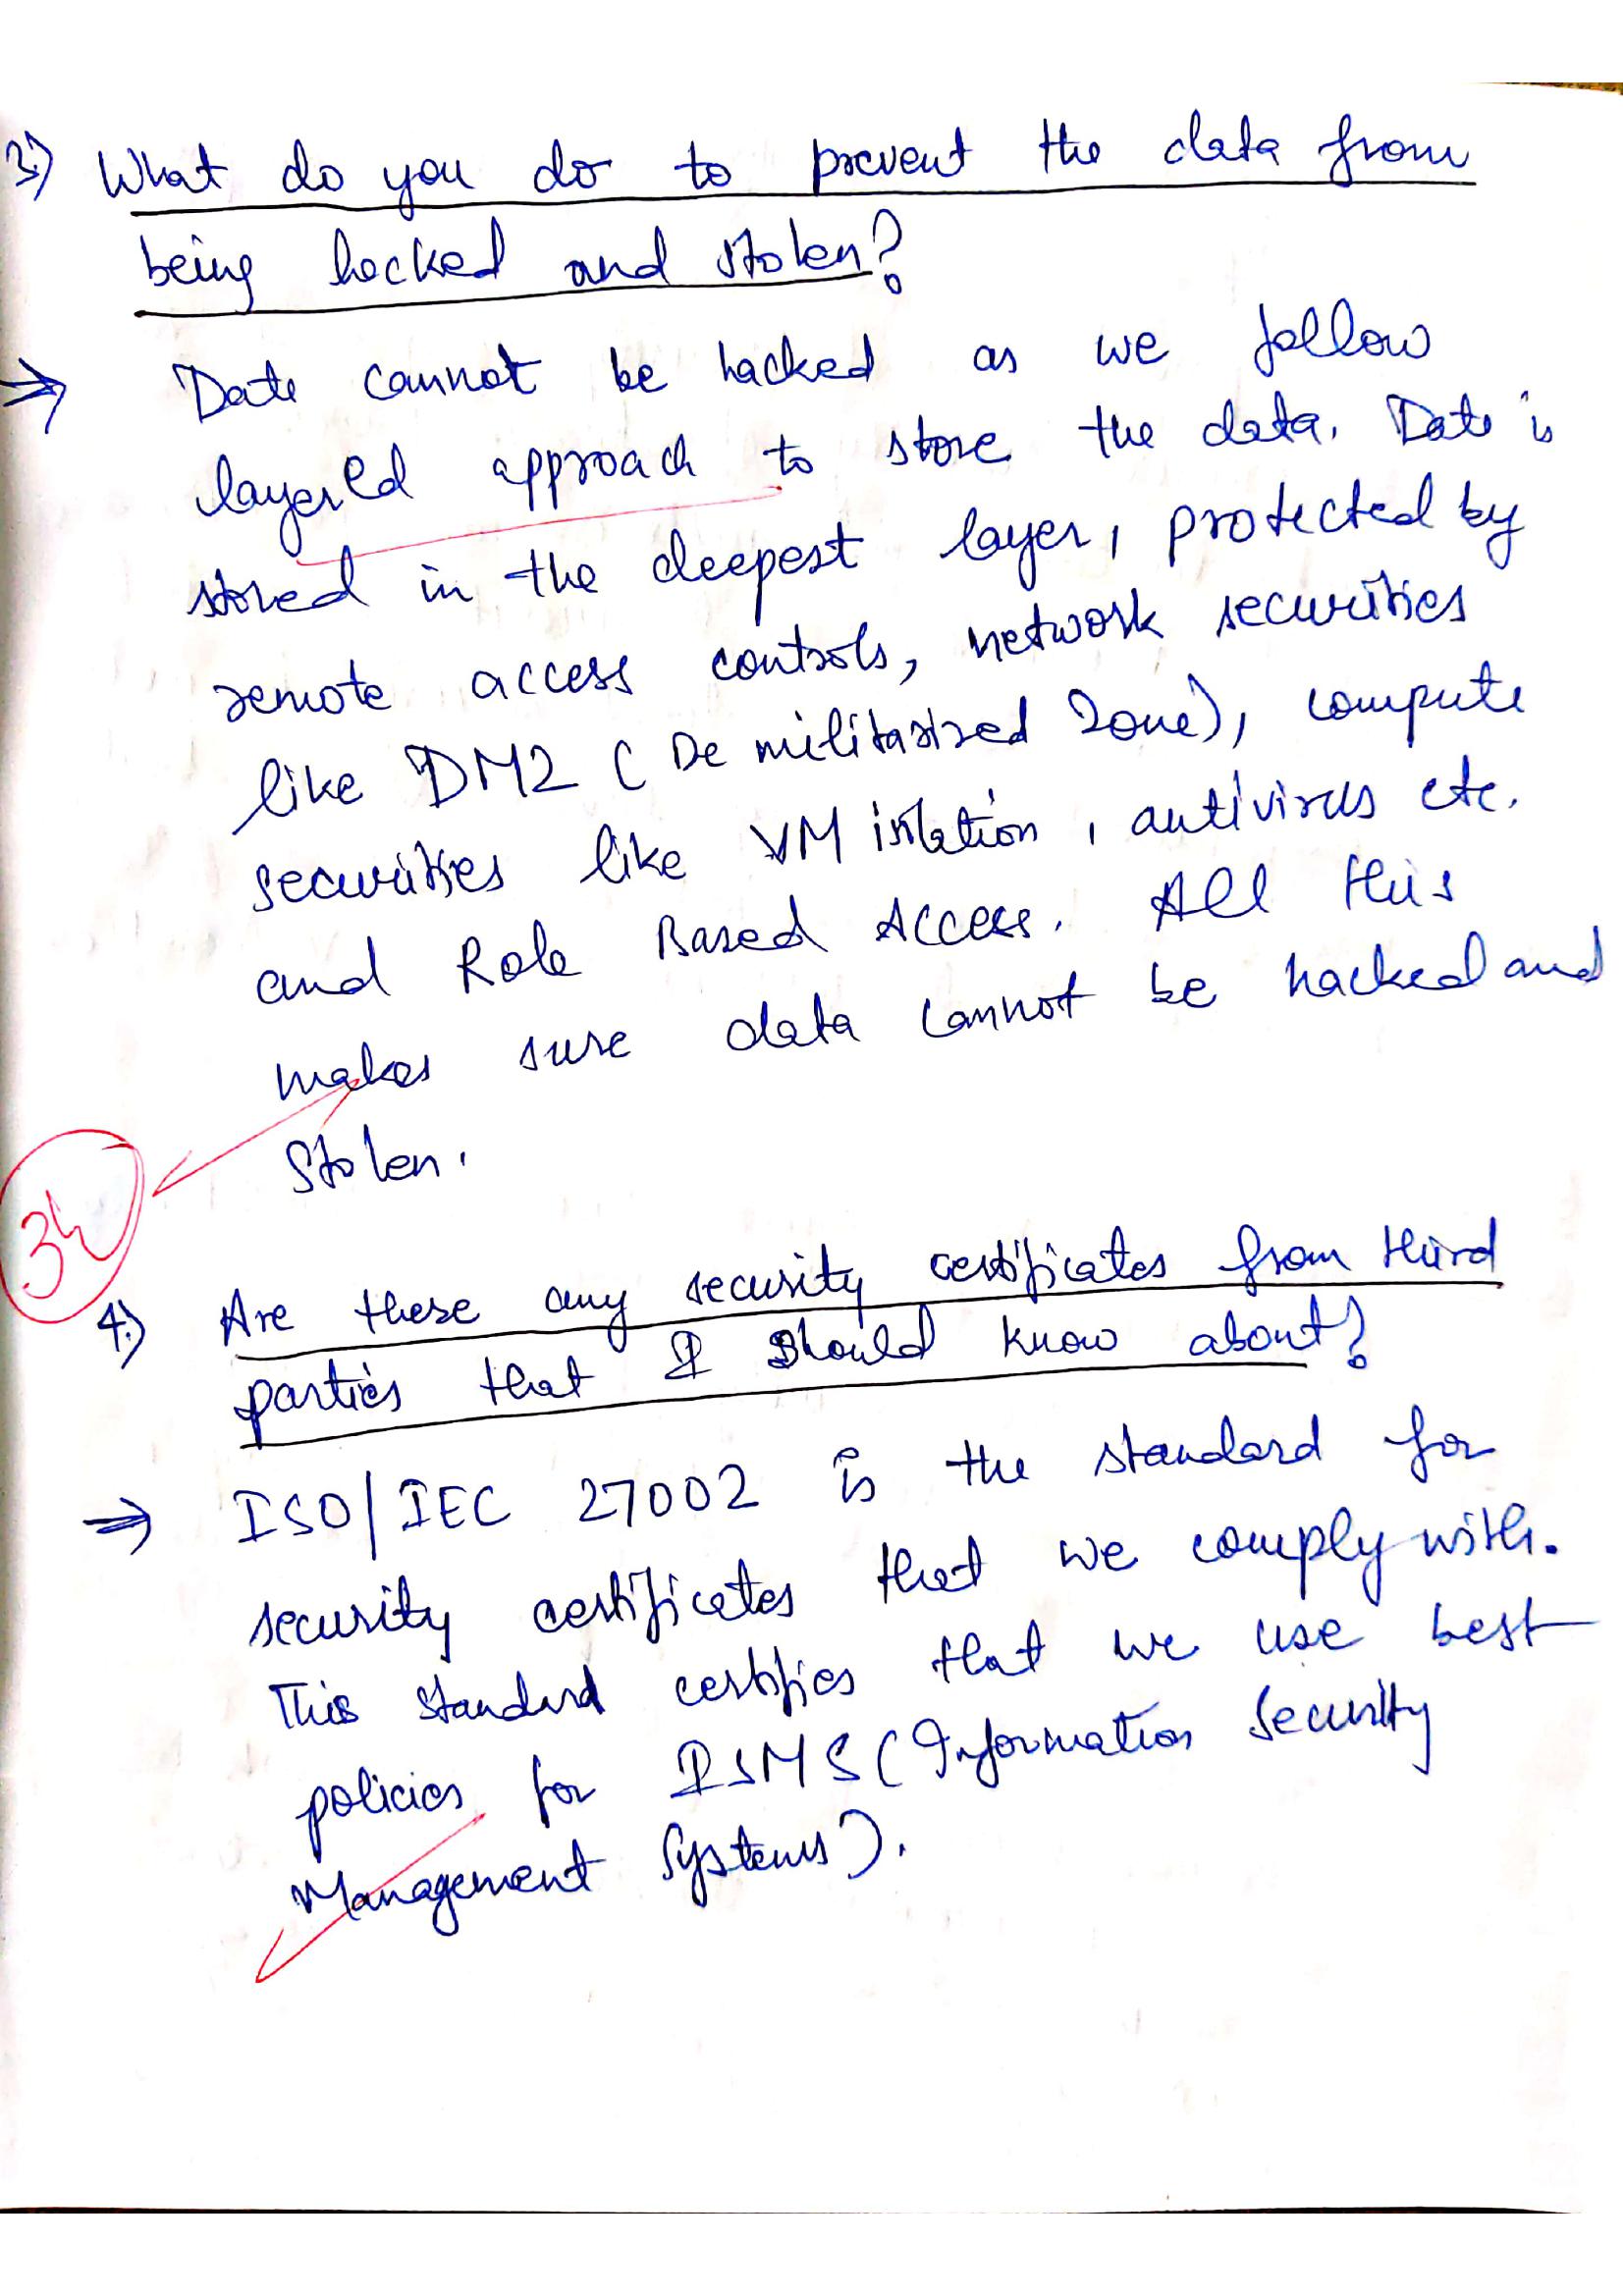 3.) What do you do to prevent the data from
being hacked and stolen?
⇒ Data cannot be hacked as we follow
layered approach to store the data. Data is
stored in the deepest layer, protected by
remote access controls, network securities
like DMZ (De militarized Zone), compute
securities like VM isolation, antivirus etc.
and Role Based Access. All this
makes sure data cannot be hacked and
stolen.
4.) Are there any security certificates from third
parties that I should know about?
⇒ ISO/IEC 27002 is the standard for
security certificates that we comply with.
This standard certifies that we use best
policies for ISMS (Information Security
Management Systems).